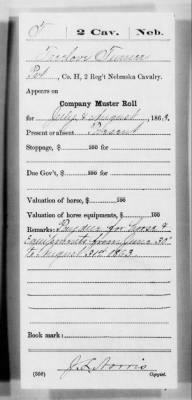 T | 2 Cav. | Neb.
Turner
Pvt, Co. H, 2 Reg't Nebraska Cavalry.
Appears on
Company Muster Roll
for July & August, 186
Present or absent Present
Stoppage, $ 100 for
Due Gov't, $ 100 for
Valuation of horse, $ 100
Valuation of horse equipments, $ 100
Remarks: Pay due for horse &
Equipments from June 30"
to August 31st 1863
Book mark:
(586)
Copyist.